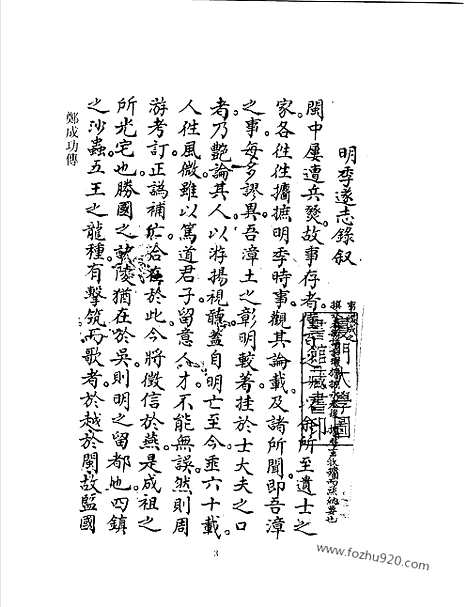 明季遂志錄叙
閩中屢遭兵燹故事存者僅百之一余所至遺士之
家各往往擕摭明季時事觀其論載及諸所聞即吾漳
之事每多謬異吾漳土之彰明較著挂於士大夫之口
者乃艷論其人以游揚視聽蓋自明亡至今垂六十載
人往風微雖以篤道君子留意人才不能無誤然則周
游考訂正譌補
於此今將徵信於燕是成祖之
所光宅也勝國之
陵猶在於吳則明之留都也四鎮
之沙蟲五王之龍種有擊筑而歌者於越於閩故監國
鄭成功傳
門大學圖
書館藏書印
3
www.fozhu920.com